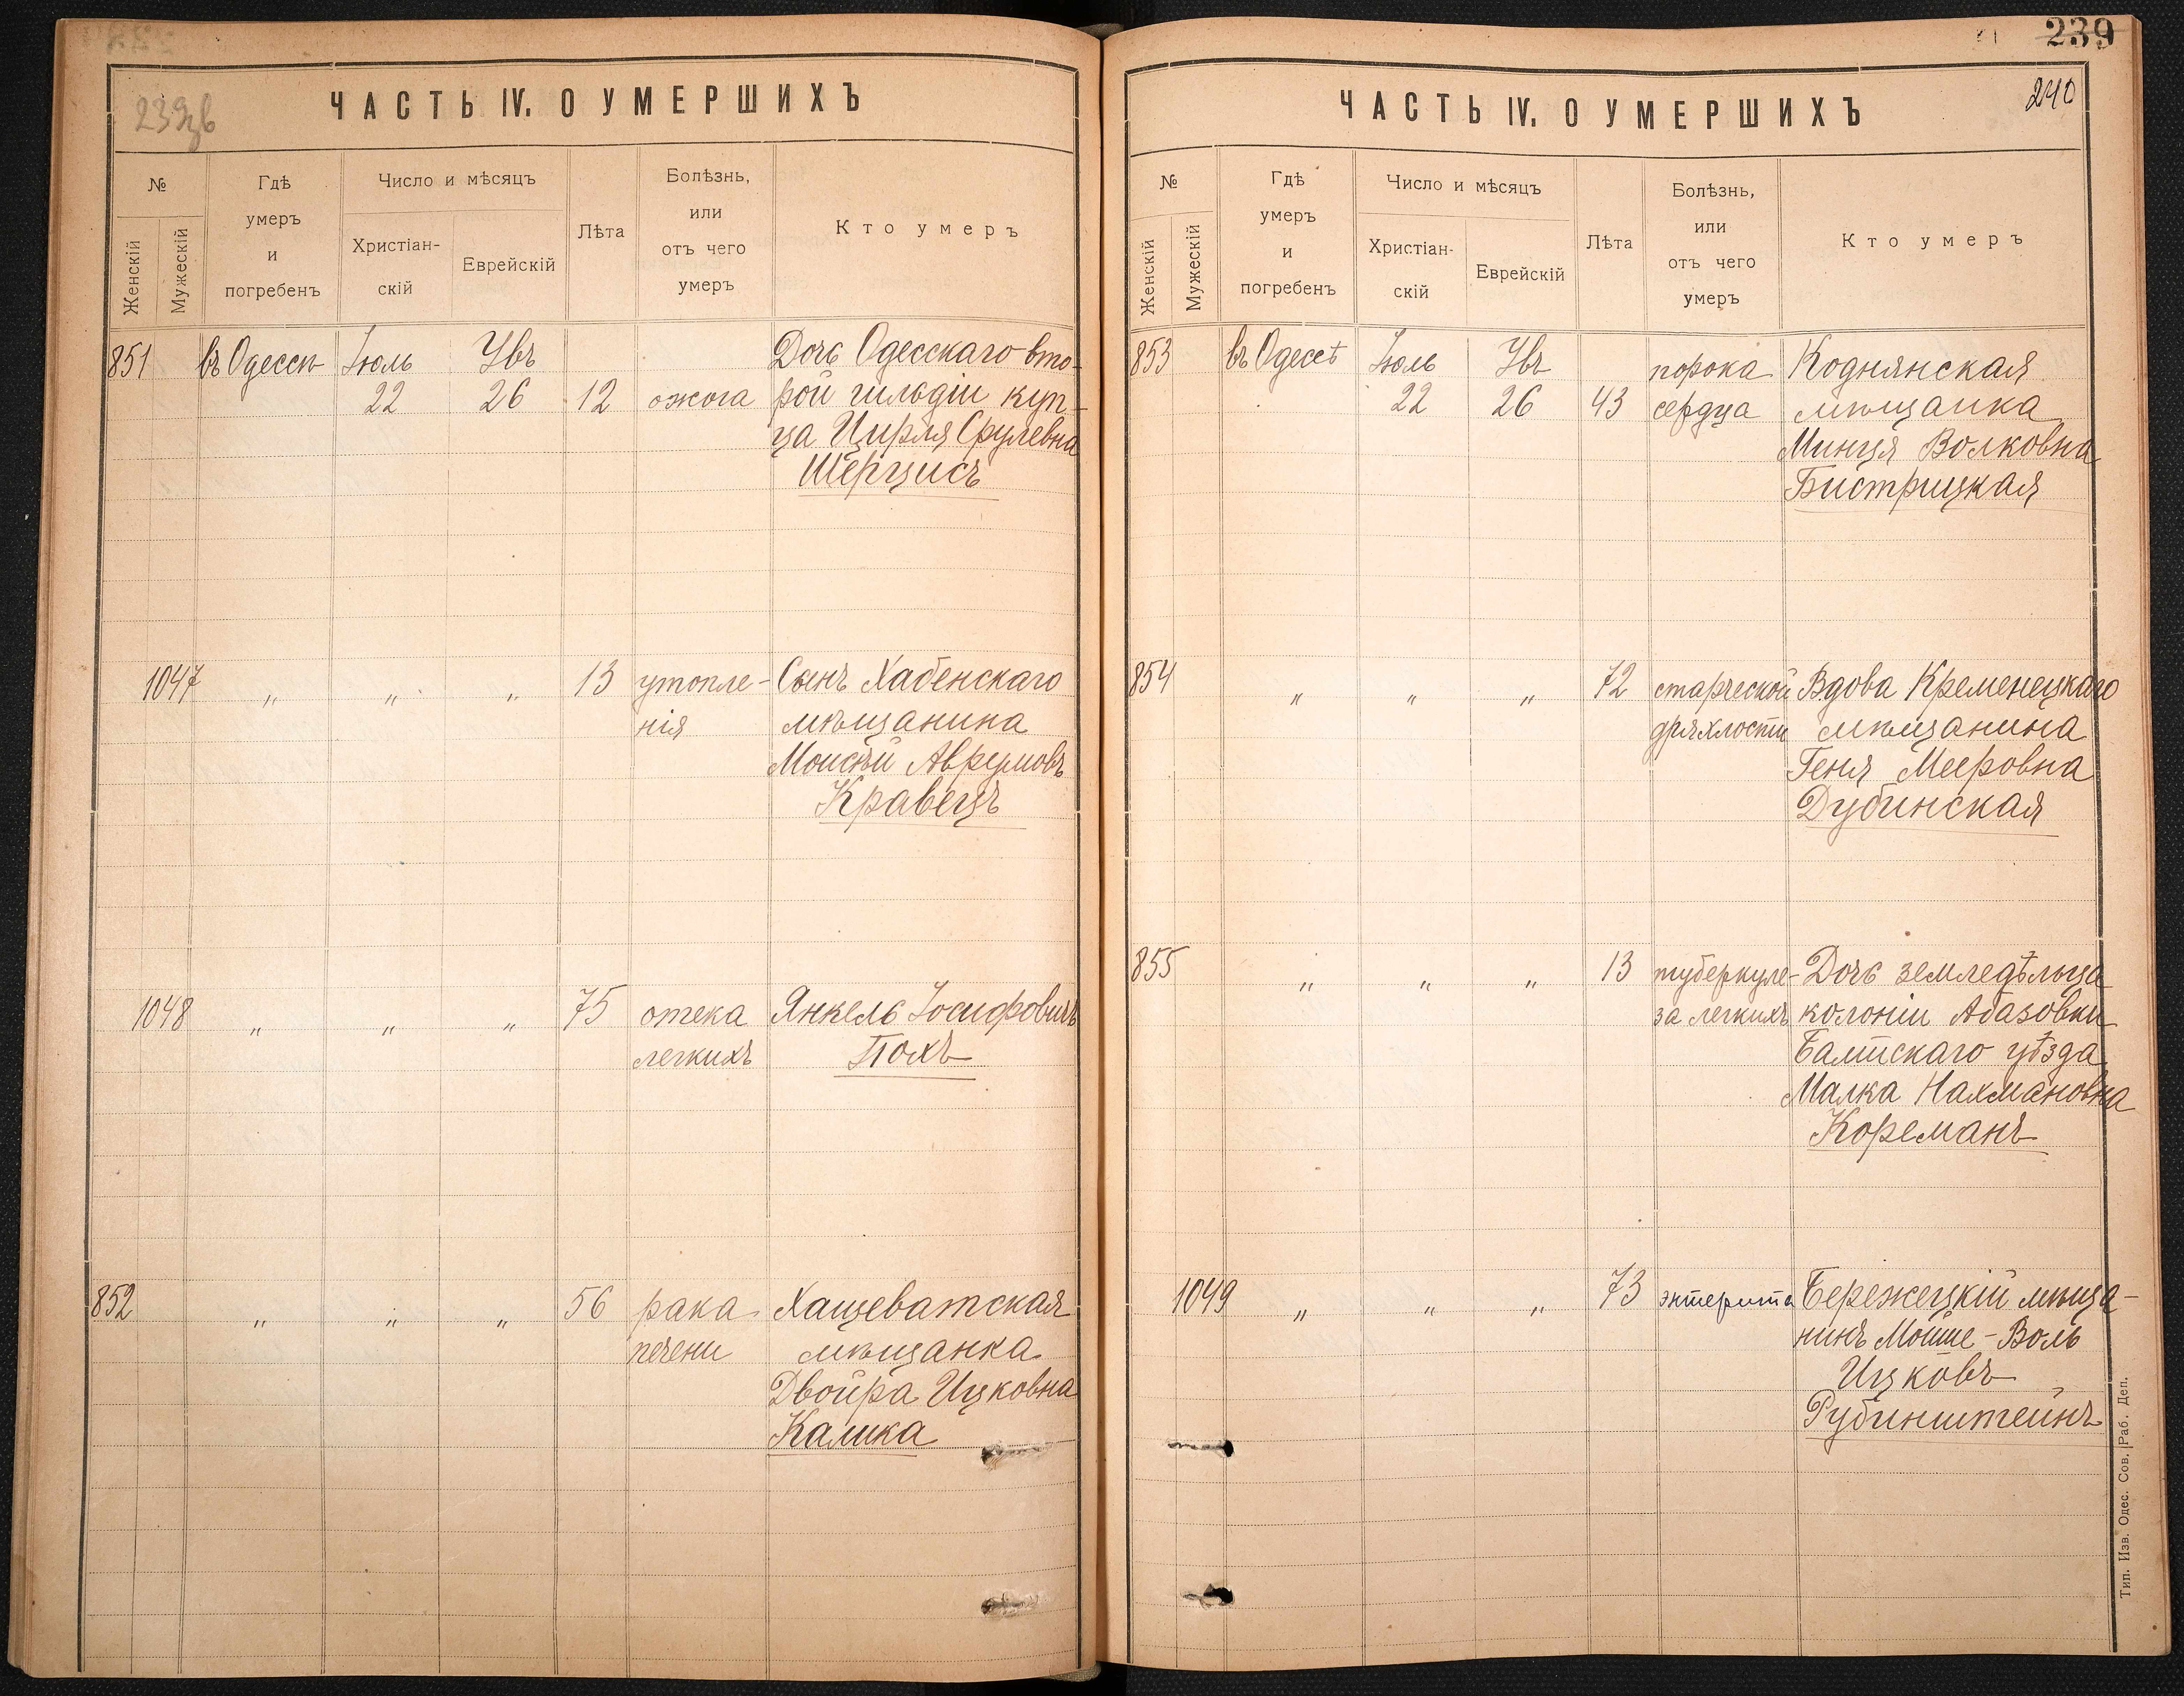 239
239зв
ЧАСТЬ IV. О УМЕРШИХЪ
№
Женскій
Мужескій
Гдѣ
умеръ
и
погребенъ
Число и мѣсяцъ
Христіан-
скій
Еврейскій
Лѣта
Болѣзнь,
или
отъ чего
умеръ
Кто умеръ
851 въ Одессѣ Іюль Увъ Дочь Одесскаго вто-
22 26 12 ожога рой гильдіи куп-
ца Цирля Срулевна
Шерцисъ
1047 „ „ „ 13 утопле- Сынъ Хабенскаго
нія мѣщанина
Моисѣй Аврумовъ
Кравецъ
1048 „ „ „ 75 отека Янкель Іосифовичъ
легкихъ Похъ
852 „ „ „ 56 рака Хащеватская
печени мѣщанка
Двойра Ицковна
Калика
240
ЧАСТЬ IV. О УМЕРШИХЪ
№
Женскій
Мужескій
Гдѣ
умеръ
и
погребенъ
Число и мѣсяцъ
Христіан-
скій
Еврейскій
Лѣта
Болѣзнь,
или
отъ чего
умеръ
Кто умеръ
853 въ Одессѣ Іюль Увъ порока Коднянская
22 26 43 сердца мѣщанка
Минця Волковна
Бистрицкая
854 „ „ „ 72 старческой Вдова Кременецкаго
дряхлости мѣщанина
Геня Мееровна
Дубинская
855 „ „ „ 13 туберкуле- Дочь земледѣльца
за легкихъ колоніи Абазовки
Балтскаго уѣзда
Малка Нахмановна
Кореманъ
1049 „ „ „ 73 энтерита Бережецкій мѣща-
нинъ Мойше-Воль
Ицковъ
Рубинштейнъ
Тип. Изв. Одес. Сов. Раб. Деп.